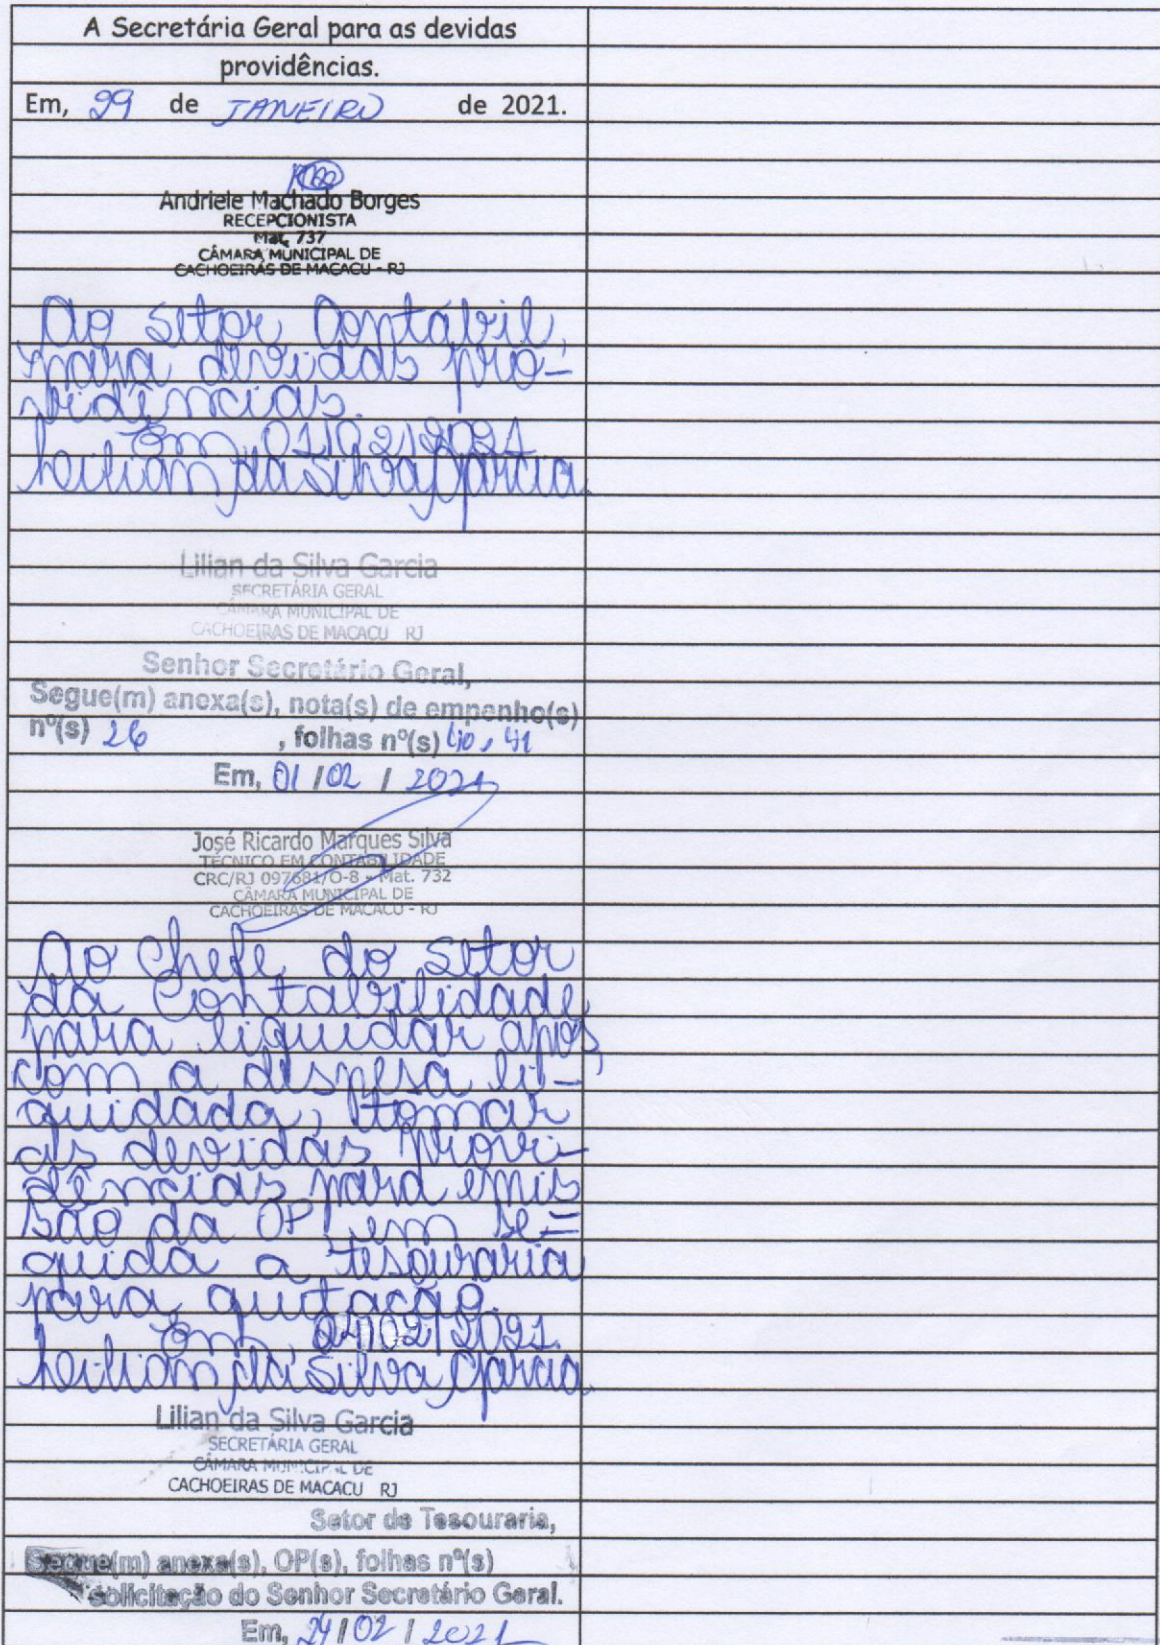 A Secretária Geral para as devidas
providências.
Em, 29 de JANEIRO de 2021.
Andriele Machado Borges
RECEPCIONISTA
Mat. 737
CÂMARA MUNICIPAL DE
CACHOEIRAS DE MACACU - RJ
Ao setor Contábil,
para devidas pro-
vidências.
Em, 01/02/2021
Leilian da Silva Garcia
Lilian da Silva Garcia
SECRETÁRIA GERAL
CÂMARA MUNICIPAL DE
CACHOEIRAS DE MACACU RJ
Senhor Secretário Geral,
Segue(m) anexa(s), nota(s) de empenho(s)
nº(s) 26 , folhas nº(s) 40, 41
Em, 01 / 02 / 2021
José Ricardo Marques Silva
TÉCNICO EM CONTABILIDADE
CRC/RJ 097681/O-8 - Mat. 732
CÂMARA MUNICIPAL DE
CACHOEIRAS DE MACACU - RJ
Ao Chefe do setor
da Contabilidade,
para liquidar após,
com a despesa li-
quidada, tomar
as devidas provi-
dências para emis
são da OP! em se=
guida a tesouraria
para quitação.
Em, 24/02/2021.
Leilian da Silva Garcia
Lilian da Silva Garcia
SECRETÁRIA GERAL
CÂMARA MUNICIPAL DE
CACHOEIRAS DE MACACU RJ
Setor de Tesouraria,
Segue(m) anexa(s), OP(s), folhas nº(s)
solicitação do Senhor Secretário Geral.
Em, 24 / 02 / 2021